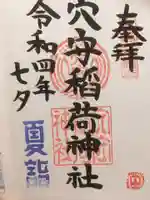 奉拝
穴守稲荷神社
令和四年
七夕
夏詣